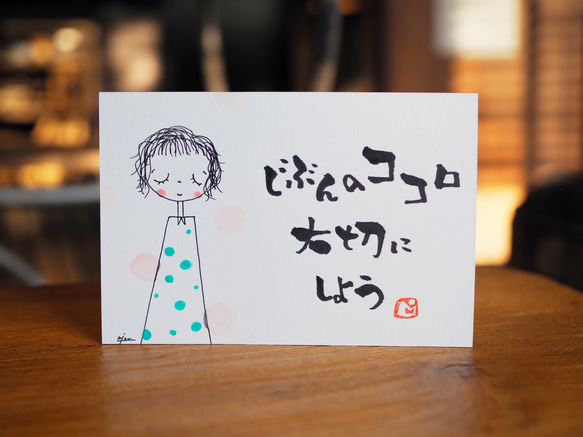 じぶんのココロ
大切に
しよう